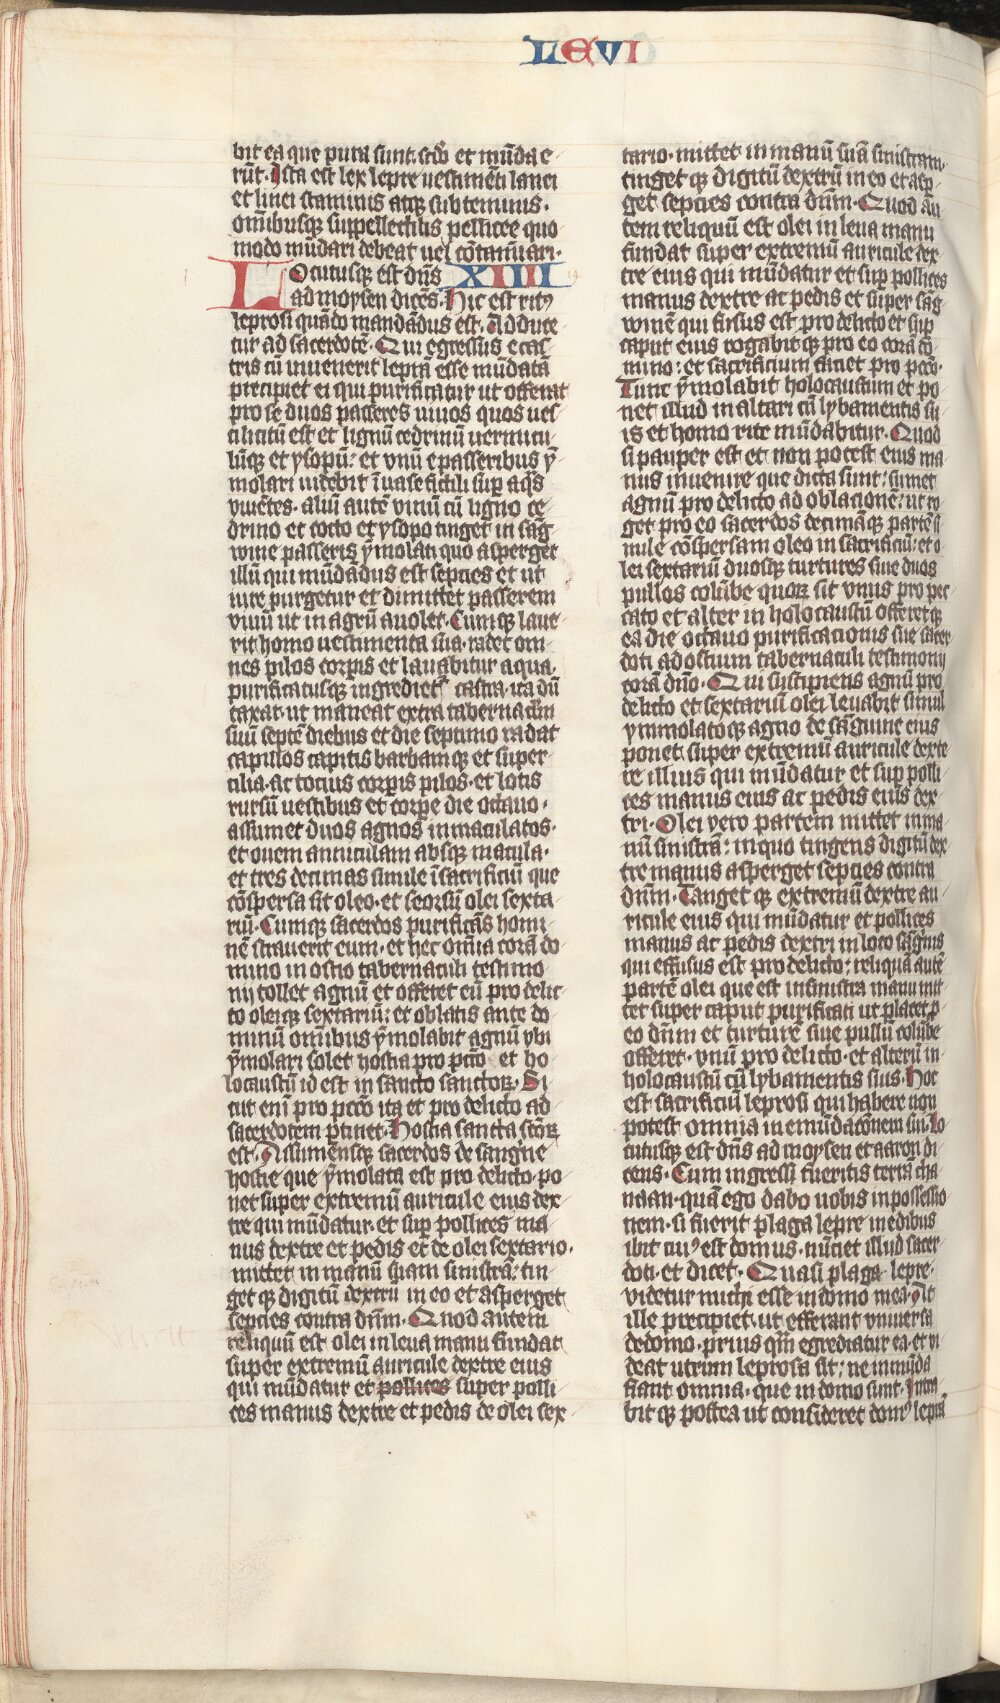 LEVI
bit ea que pura sunt. scd̄o et mūda e
rūt. Ista est lex lepre uestimēti lanei
et linei staminis atqꝫ subteminis.
om̄ibusqꝫ suppellectilis pellicee quo
modo mūdari debeat uel cōtamīari.
Locutusqꝫ est dn̄s XIIII
ad moysen dicēs. Hic est rituꝰ
leprosi quādo mandādus est. Adduce
tur ad sacerdotē. Qui egressus e cas
tris cū inuenerit leprā esse mūdatā
precipiet ei qui purificatur ut offerat
pro se duos passeres uiuos quos ues
ci licitū est et lignū cedrinū uermicu
lūqꝫ et ysopū: et vnū e passeribus ȳ
molari iubebit ī uase fictili suꝑ aq̄s
viuētes. aliū autē viuū cū ligno ce
drino et cocto et ysopo tinget in sāg
wine passeris ȳmolati quo asperget
illū qui mūdādus est septies et ut
iure purgetur et dimittet passerem
viuū ut in agrū auolet. Cumqꝫ laue
rit homo uestimenta sua. radet om
nes pilos corꝑis et lauabitur aqua.
purificatusqꝫ ingredietᷣ castra. ita dū
taxat ut maneat extra tabernaclm̄
suū septē diebus et die septimo radat
capillos capitis barbamqꝫ et super
cilia. ac tocius corꝑis pilos. et lotis
rursū uestibus et corꝑe die octauo.
assumet duos agnos inmaculatos.
et ouem anniculam absqꝫ macula.
et tres decimas simile ī sacrificiū que
cōspersa sit oleo. et seorsū olei sexta
riū. Cumqꝫ sacerdos purificās homi
nē strauerit eum. et hec om̄ia corā do
mino in ostio tabernaculi testimo
nij tollet agnū et offeret eū pro delic
to oleiqꝫ sextariū: et oblatis ante do
minū om̄ibus ȳmolabit agnū vbi
ȳmolari solet hostia pro pctō et ho
locaustū id est in sancto sanctoꝝ. Si
cut eni̅ pro pctō ita et pro delicto ad
sacerdotem ꝑtinet. Hostia sancta sctōꝝ
est. Assumensqꝫ sacerdos de sangine
hostie que ȳmolata est pro delicto. po
net super extremū auricule eius dex
tre qui mūdatur. et suꝑ pollices ma
nus dextre et pedis et de olei sextario.
mittet in manū suam sinistrā: tin
get qꝫ digitū dextrū in eo et asperget
septies contra dn̄m. Quod autem
reliquū est olei in leua manu fundat
super extremū auricule dextre eius
qui mūdatur et pollices super polli
ces manus dextre et pedis de olei sex
tario. mittet in manū suā sinistram.
tinget qꝫ digitū dextrū in eo et asꝑ
get septies contra dn̄m. Quod au
tem reliquū est olei in leua manu
fundat super extremū auricule dex
tre eius qui mūdatur et suꝑ pollices
manus dextre ac pedis et super sāg
winē qui fusus est pro delicto et suꝑ
caput eius rogabit qꝫ pro eo corā do
mino: et sacrificium faciet pro pctō.
Tunc ȳmolabit holocaustum et po
net illud in altari cū lybamentis su
is et homo rite mūdabitur. Quod
si pauper est et non potest eius ma
nus inuenire que dicta sunt: sumet
agnū pro delicto ad oblacionē: ut ro
get pro eo sacerdos decimāqꝫ partē si
mule cōspersam oleo in sacrificiū: et o
lei sextariū duosqꝫ turtures siue duos
pullos colūbe quoꝝ sit vnus pro pec
cato et alter in holocaustū offeretqꝫ
ea die octauo purificacionis sue sacer
doti ad ostium tabernaculi testimonij
corā dn̄o. Qui suscipiens agnū pro
delicto et sextariū olei leuabit simul
ymmolatoqꝫ agno de sāguine eius
ponet super extremū auricule dexte
re illius qui mūdatur et suꝑ polli
ces manus eius ac pedis eius dex
tri. Olei vero partem mittet in ma
nū sinistrā: in quo tingens digitū dex
tre manus asperget septies contra
dn̄m. Tanget qꝫ extremū dextre au
ricule eius qui mūdatur et pollices
manus ac pedis dextri in loco sāgnis
qui effusus est pro delicto: reliquā autē
partē olei que est in sinistra manu mit
tet super caput purificati ut placet ꝓ
eo dn̄m et turturē siue pullū colūbe
offeret. vnū pro delicto. et alterū in
holocaustū cū lybamentis suis. Hoc
est sacrificiū leprosi qui habere non
potest omnia in emūdacōnem sui. Lo
cutusqꝫ est dn̄s ad moysen et aaron di
cens. Cum ingressi fueritis terrā cha
naan. quā ego dabo uobis in possessio
nem. si fuerit plaga lepre in edibus
ibit cuiꝰ est domus. nūciet illud sacer
doti. et dicet. Quasi plaga lepre.
videtur michi esse in domo mea. At
ille precipiet. ut efferant vniuersa
de domo. prius qm̄ egrediatur ea. et vi
deat utrum leprosa sit: ne inmūda
fiant omnia. que in domo sunt. Intra
bit qꝫ postea ut consideret domꝰ leprā